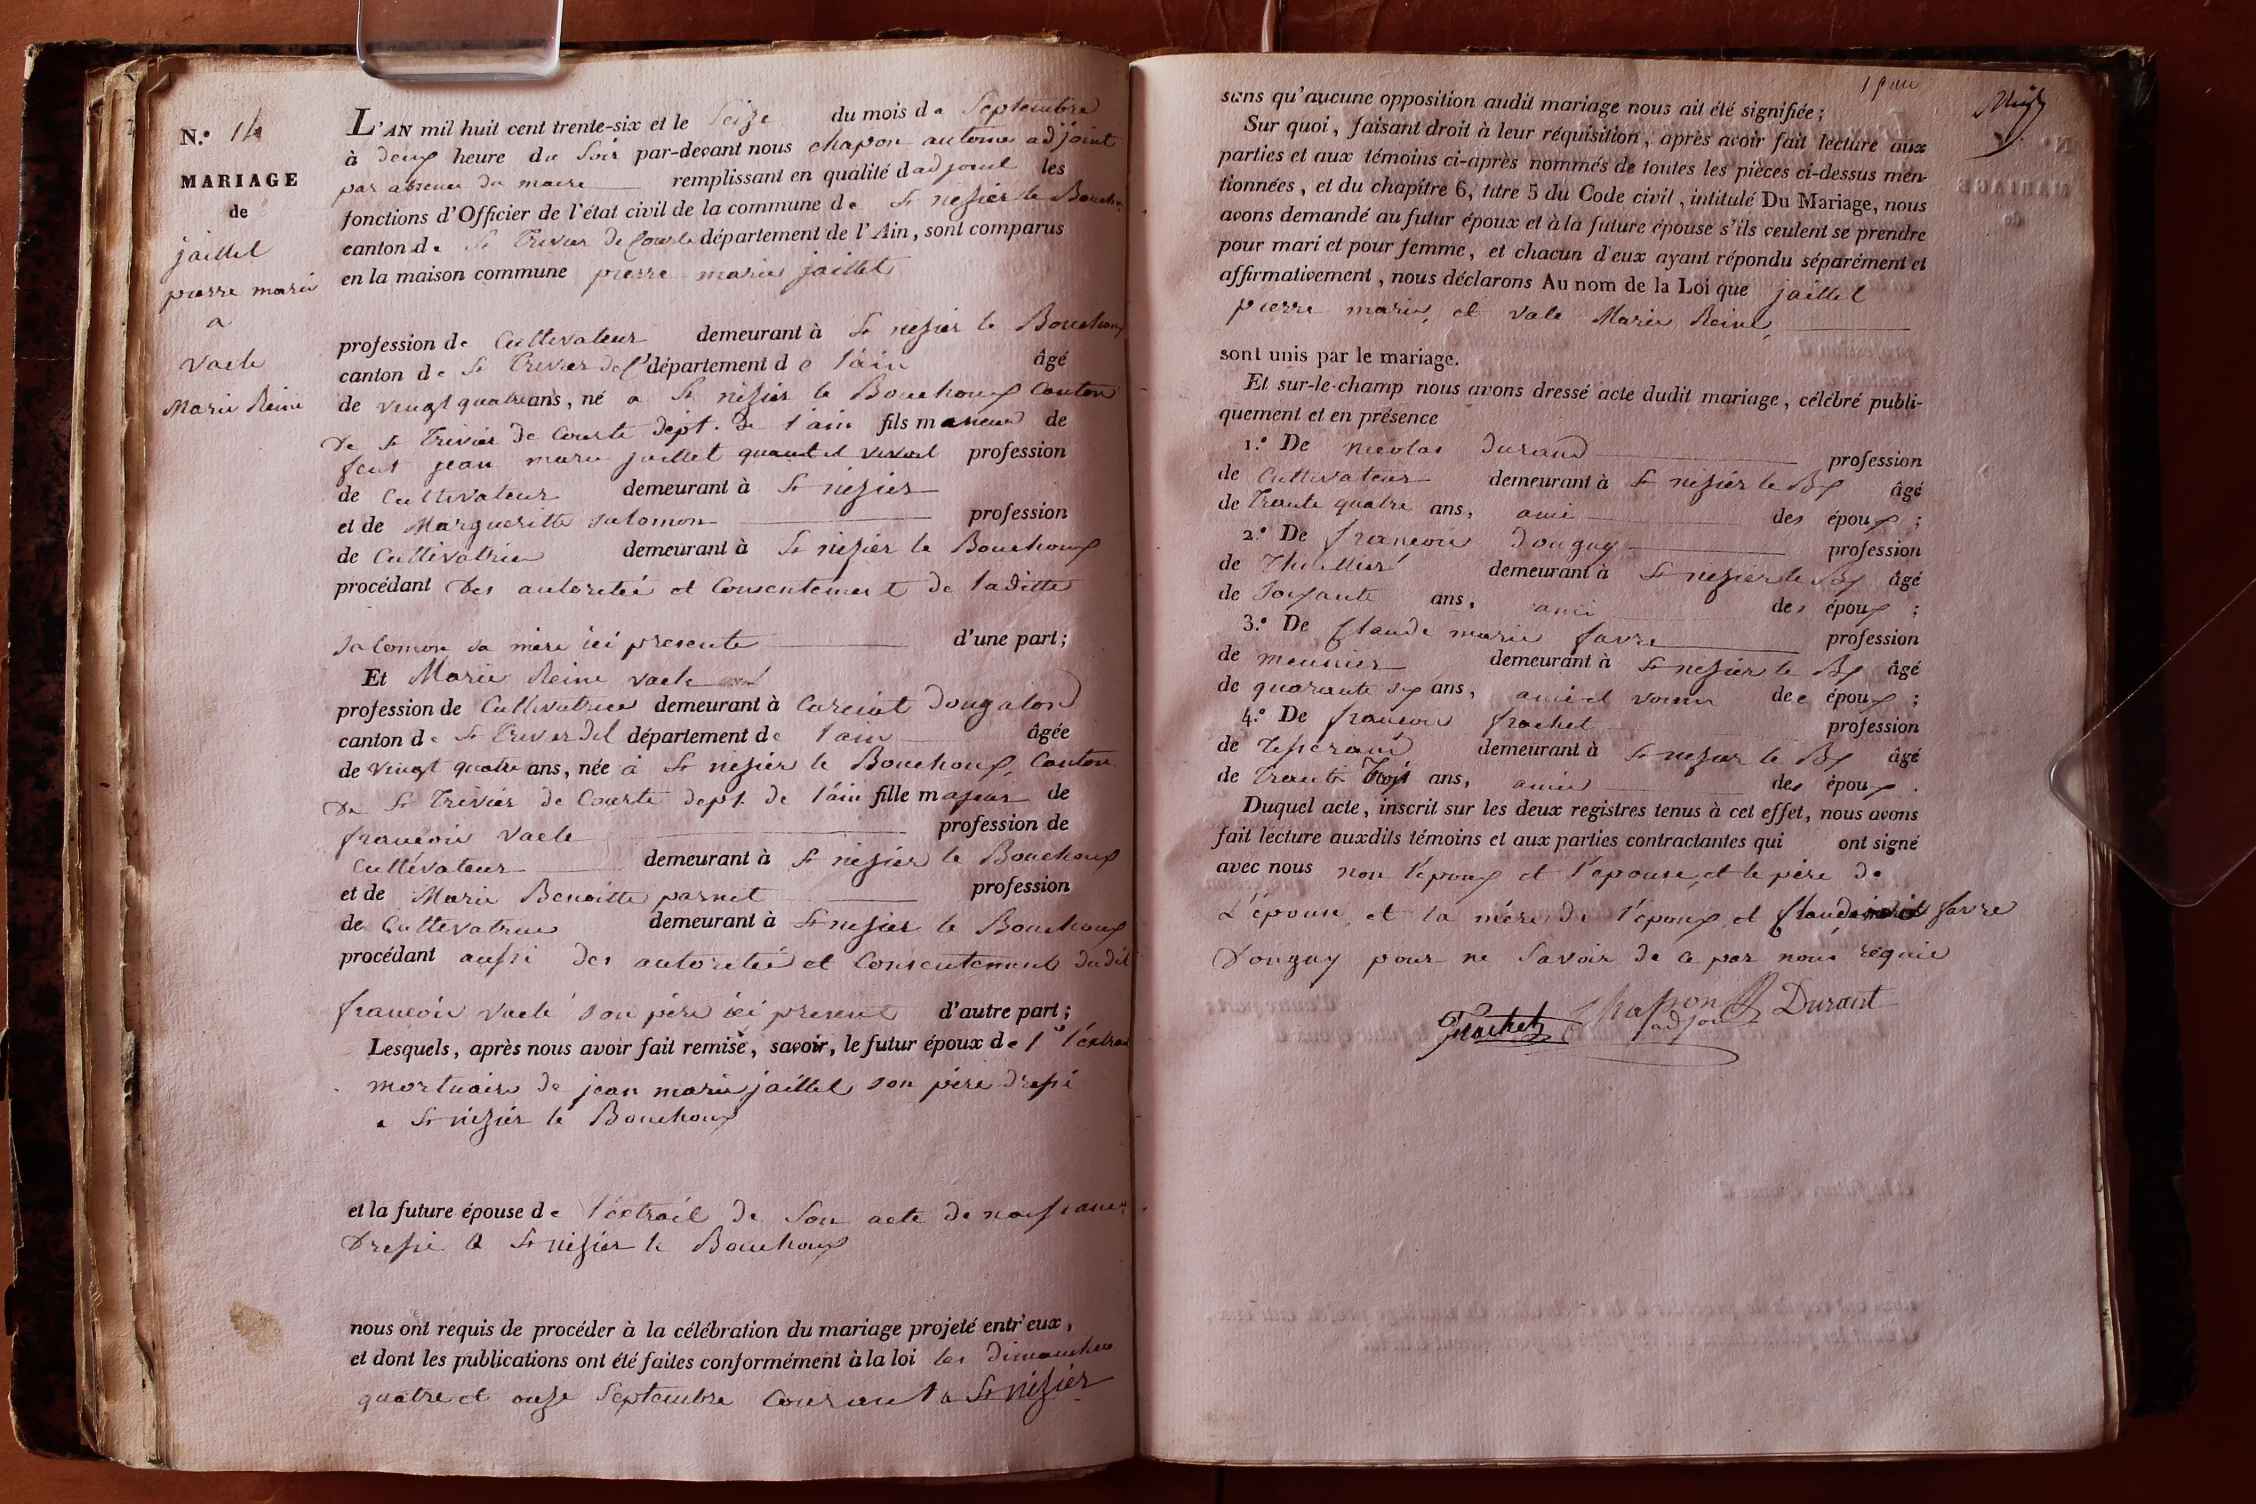 N.° 14
MARIAGE
de
jaillet
pierre marie
a
vacle
Marie Reine
L'AN mil huit cent trente-six et le Seize du mois de Septembre
à deux heure du Soir par-devant nous chapon antoine adjoint
par absence du maire remplissant en qualité dadjoint les
fonctions d'Officier de l'état civil de la commune de St nesier le Bouchoux
canton de St Trivier de Courte département de l'Ain, sont comparus
en la maison commune pierre marie jaillet
profession de Cultivateur demeurant à St nesier le Bouchoux
canton de St Trivier de C département de l'ain âgé
de vingt quatre ans, né a St nisier le Bouchoux Canton
De St Trivier De Courte dept. De l'ain fils maneur de
feut jean marie jaillet quant il vivoit profession
de Cultivateur demeurant à St nesier
et de Margueritte salomon profession
de Cultivatrice demeurant à St nesier le Bouchoux
procédant Des autoritée et Consentement De laditte
salomon sa mère ici presente d'une part;
Et Marie Reine vacle
profession de Cultivatrice demeurant à Curciat Dongalon
canton de St Trivier de C département de l'ain âgée
de vingt quatre ans, née à St nesier le Bouchoux, Canton
De St Trivier de Courte dept. de l'ain fille majeur de
francois vacle profession de
Cultivateur demeurant à St nesier le Bouchoux
et de Marie Benoitte parnet profession
de Cultivatrice demeurant à St nesier le Bouchoux
procédant aussi des autoritée et Consentement dudit
francois vacle son père ici present d'autre part;
Lesquels, après nous avoir fait remise, savoir, le futur époux de l'extrait
mortuaire de jean marie jaillet son père dressé
a St nisier le Bouchoux
et la future épouse de l'extrait de son acte de naissance
Dressé a St nisier le Bouchoux
nous ont requis de procéder à la célébration du mariage projeté entr'eux,
et dont les publications ont été faites conformément à la loi les dimanches
quatre et onze Septembre Courant a St nisier
sans qu'aucune opposition audit mariage nous ait été signifiée;
Sur quoi, faisant droit à leur réquisition, après avoir fait lecture aux
parties et aux témoins ci-après nommés de toutes les pièces ci-dessus men-
tionnées, et du chapitre 6, titre 5 du Code civil, intitulé Du Mariage, nous
avons demandé au futur époux et à la future épouse s'ils veulent se prendre
pour mari et pour femme, et chacun d'eux ayant répondu séparément et
affirmativement, nous déclarons Au nom de la Loi que jaillet
pierre marie, et vacle Marie Reine,
sont unis par le mariage.
Et sur-le-champ nous avons dressé acte dudit mariage, célébré publi-
quement et en présence
1.° De nicolas durand profession
de Cultivateur demeurant à St nisier le Bx âgé
de Trante quatre ans, ami des époux;
2.° De francois Donguy profession
de demeurant à St nesier le Bx âgé
de soixante ans, ami des époux;
3.° De Claude marie favre profession
de meunier demeurant à St nesier le Bx âgé
de quarante six ans, ami et voisin des époux;
4.° De francois frachet profession
de Tisserand demeurant à St nesier le Bx âgé
de Trante Trois ans, ami des époux.
Duquel acte, inscrit sur les deux registres tenus à cet effet, nous avons
fait lecture auxdits témoins et aux parties contractantes qui ont signé
avec nous non l'époux et l'épouse, et le père de
L'épouse, et la mère de l'époux, et Claude marie favre
Donguy pour ne savoir de ce par nous requie
Frachet Chapon adjoint Durant